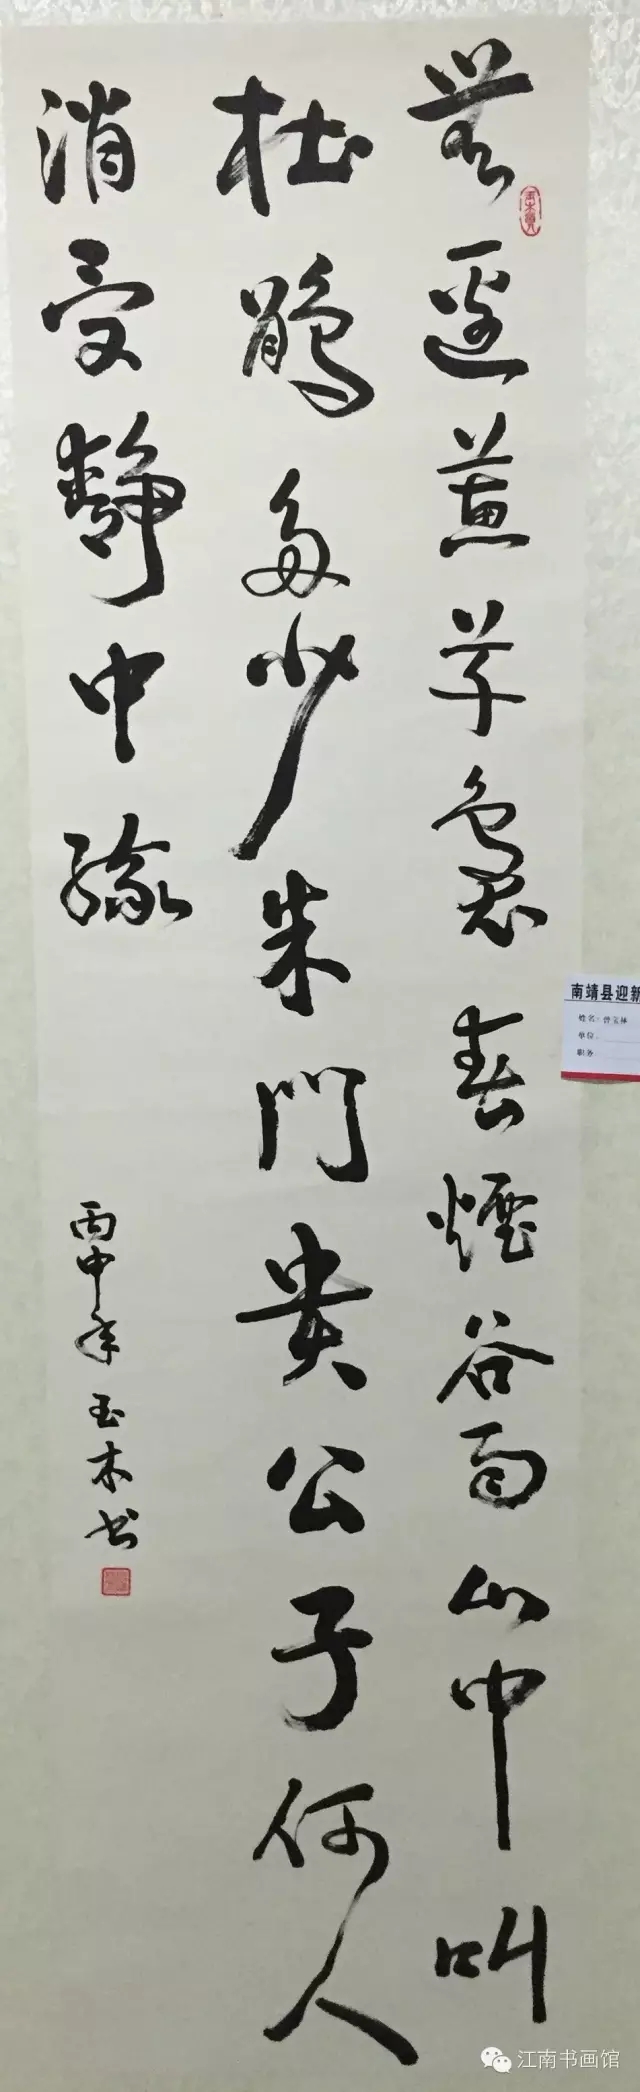 邊蕙草春煙谷雨山中叫
杜鹃多少朱門貴公子何人
消受靜中緣
丙申年玉木书
南靖县迎新
姓名：曾宝林
单位：
职务
江南书画馆